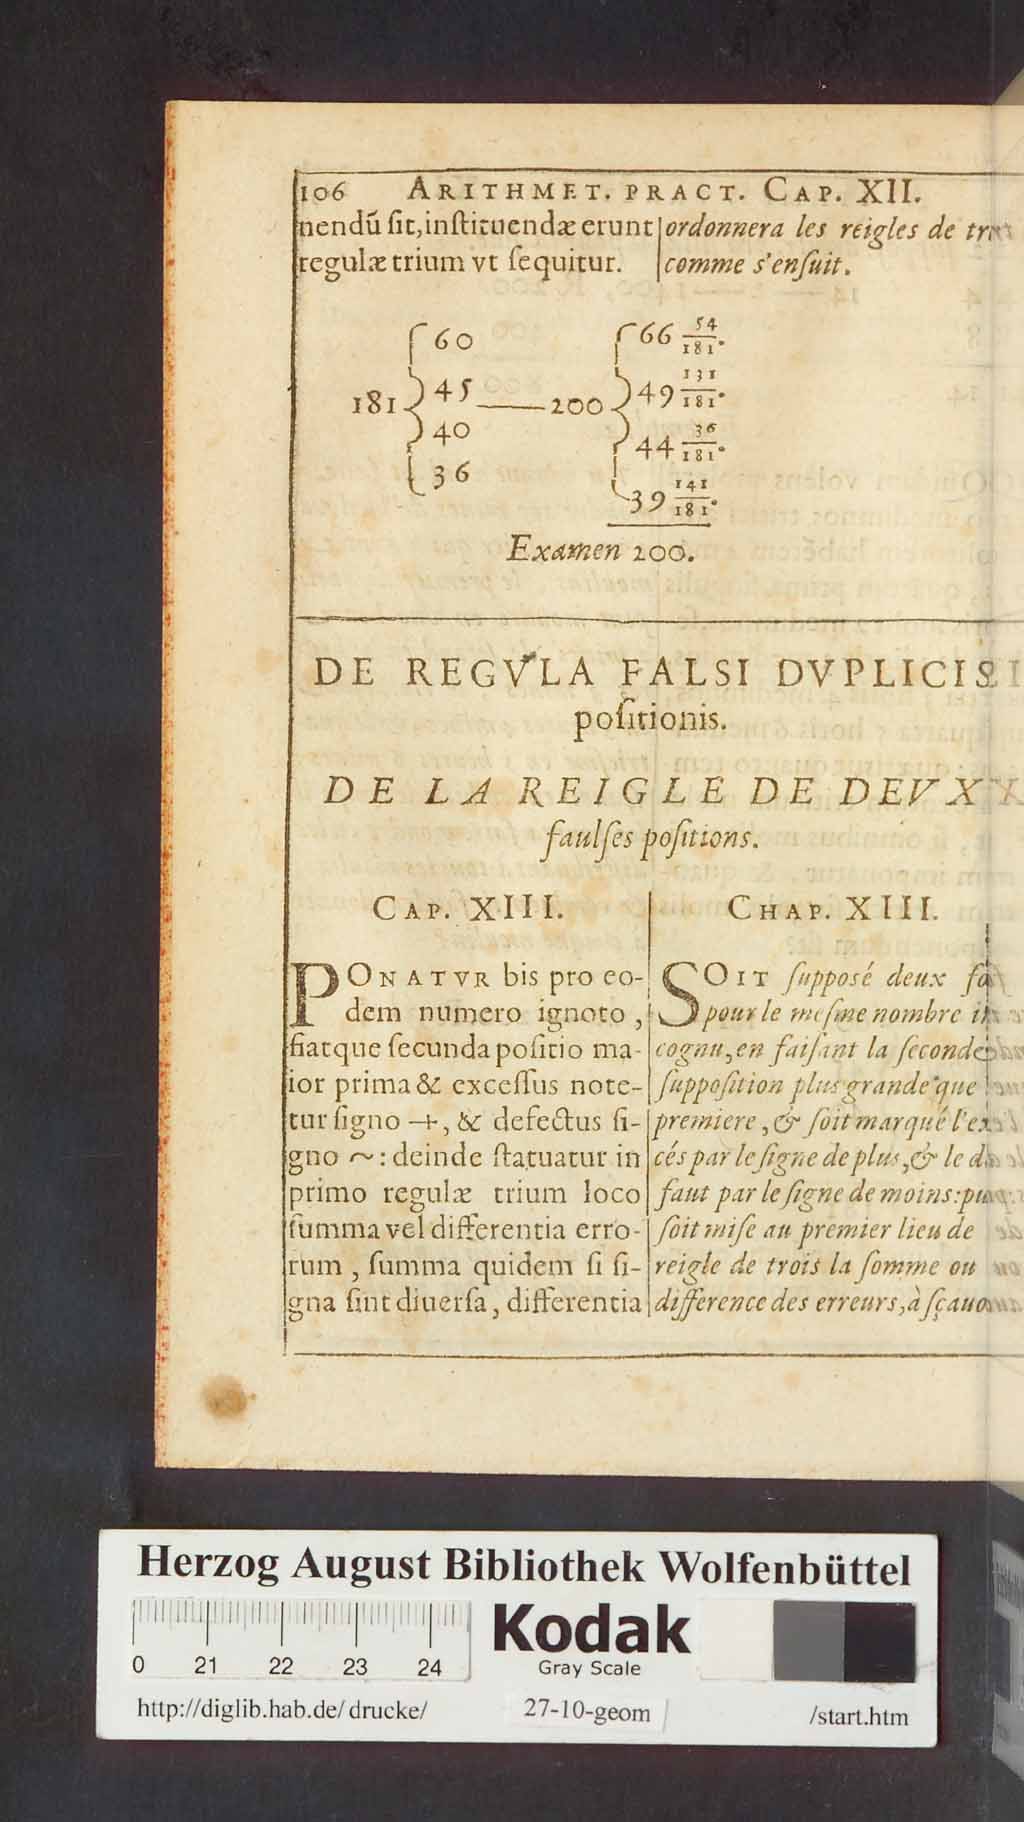 106 ARITHMET. PRACT. CAP. XII.
nendũ ſit, inſtituendæ erunt
regulæ trium vt ſequitur.
ordonnera les reigles de
comme s'enſuit.
60
45
181 — 200
40
36
66 54/181.
49 131/181.
44 36/181.
39 141/181.
Examen 200.
DE REGVLA FALSI DVPLICIS
poſitionis.
DE LA REIGLE DE DEVX
faulſes poſitions.
CAP. XIII.
PONATVR bis pro eo-
dem numero ignoto,
fiatque ſecunda poſitio ma-
ior prima & exceſſus note-
tur ſigno +, & defectus ſi-
gno ~: deinde ſtatuatur in
primo regulæ trium loco
ſumma vel differentia erro-
rum, ſumma quidem ſi ſi-
gna ſint diuerſa, differentia
CHAP. XIII.
SOIT ſuppoſé deux
pour le meſme nombre
cognu, en faiſant la ſeconde
ſuppoſition plus grande que
premiere, & ſoit marqué l'ex
cés par le ſigne de plus, & le
faut par le ſigne de moins:
ſoit miſe au premier lieu de
reigle de trois la ſomme ou
difference des erreurs, à ſçauo
Herzog August Bibliothek Wolfenbüttel
Kodak
Gray Scale
0 21 22 23 24
http://diglib.hab.de/drucke/ 27-10-geom /start.htm